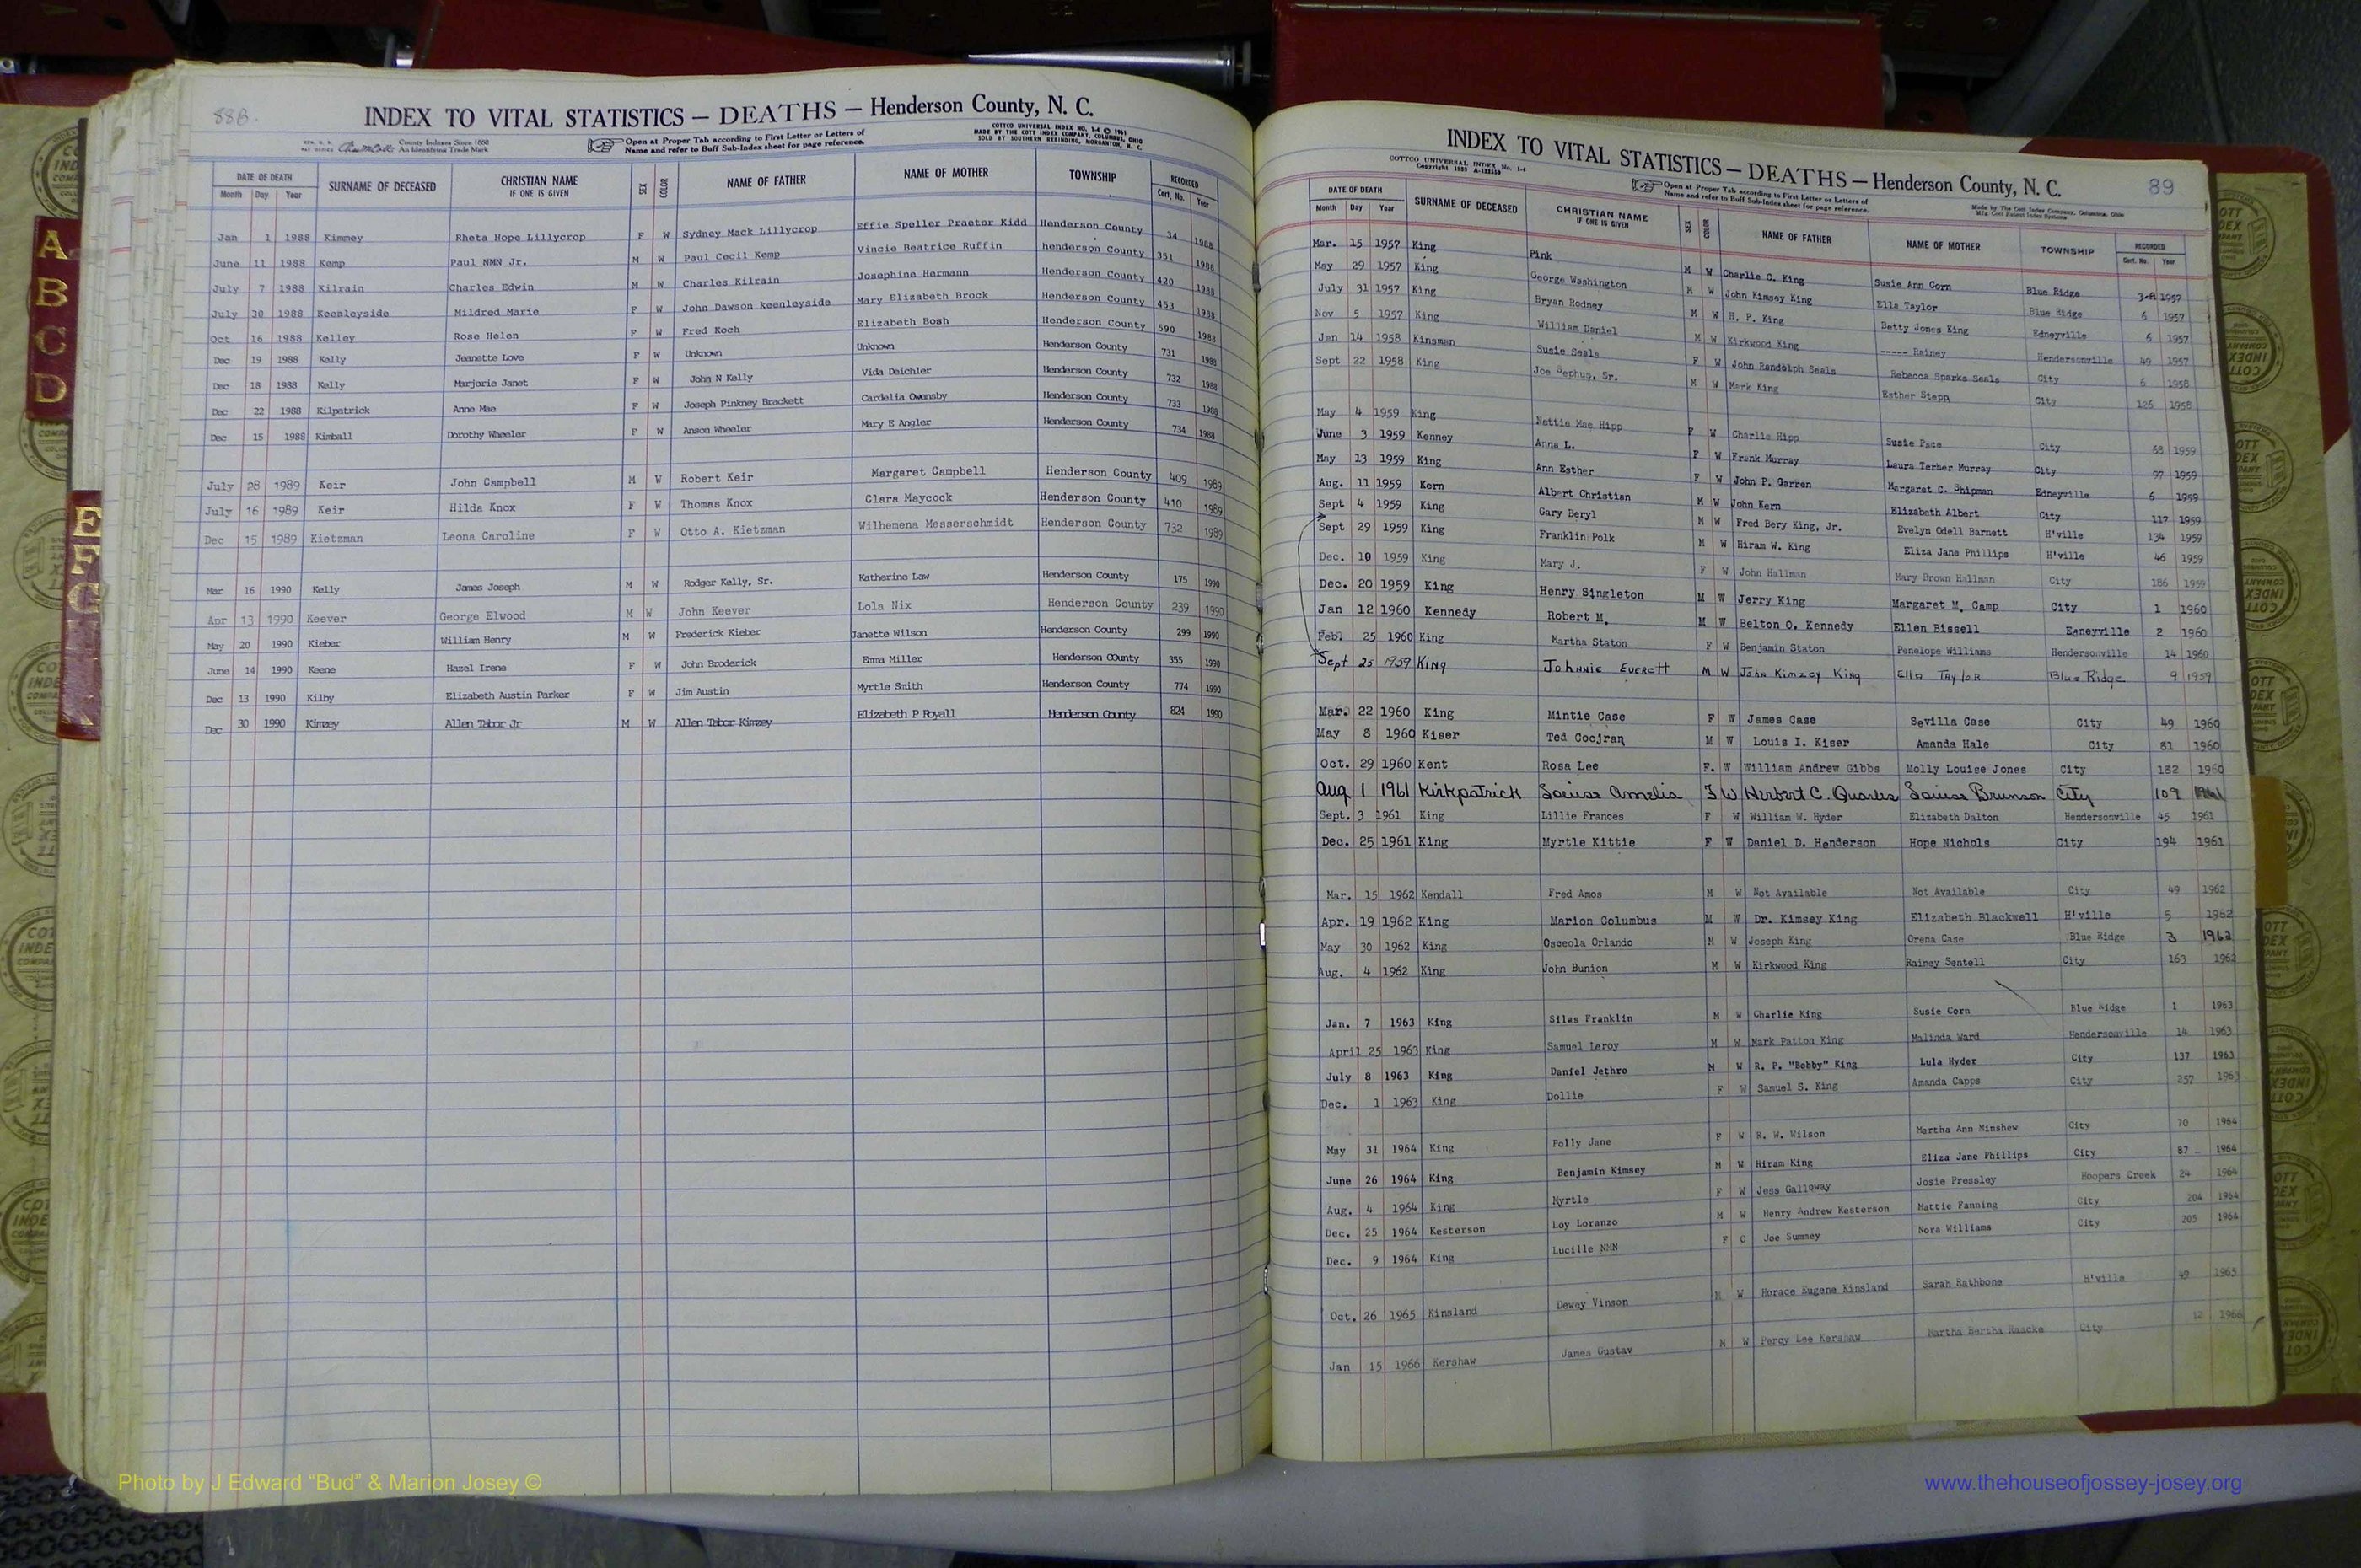 88B.
INDEX TO VITAL STATISTICS — DEATHS — Henderson County, N. C.
County Indexes Since 1888
An Identifying Trade Mark
Open at Proper Tab according to First Letter or Letters of
Name and refer to Buff Sub-Index sheet for page reference.
COTTCO UNIVERSAL INDEX NO. 1-4 © 1961
MADE BY THE COTT INDEX COMPANY, COLUMBUS, OHIO
SOLD BY SOUTHERN REBINDING, MORGANTON, N. C.
DATE OF DEATH SURNAME OF DECEASED CHRISTIAN NAME IF ONE IS GIVEN SEX COLOR NAME OF FATHER NAME OF MOTHER TOWNSHIP RECORDED
Month Day Year Cert. No. Year
Jan 1 1988 Kimmey Rheta Hope Lillycrop F W Sydney Mack Lillycrop Effie Speller Praetor Kidd Henderson County 34 1988
June 11 1988 Kemp Paul NMN Jr. M W Paul Cecil Kemp Vincie Beatrice Ruffin henderson County 351 1988
July 7 1988 Kilrain Charles Edwin M W Charles Kilrain Josephine Hermann Henderson County 420 1988
July 30 1988 Keenleyside Mildred Marie F W John Dawson keenleyside Mary Elizabeth Brock Henderson County 453 1988
Oct 16 1988 Kelley Rose Helen F W Fred Koch Elizabeth Bosh Henderson County 590 1988
Dec 19 1988 Kelly Jeanette Love F W Unknown Unknown Henderson County 731 1988
Dec 18 1988 Kelly Marjorie Janet F W John N Kelly Vida Deichler Henderson County 732 1988
Dec 22 1988 Kilpatrick Anne Mae F W Joseph Pinkney Brackett Cardelia Owensby Henderson County 733 1988
Dec 15 1988 Kimball Dorothy Wheeler F W Anson Wheeler Mary E Angler Henderson County 734 1988
July 28 1989 Keir John Campbell M W Robert Keir Margaret Campbell Henderson County 409 1989
July 16 1989 Keir Hilda Knox F W Thomas Knox Clara Maycock Henderson County 410 1989
Dec 15 1989 Kietzman Leona Caroline F W Otto A. Kietzman Wilhemena Messerschmidt Henderson County 732 1989
Mar 16 1990 Kelly James Joseph M W Rodger Kelly, Sr. Katherine Law Henderson County 175 1990
Apr 13 1990 Keever George Elwood M W John Keever Lola Nix Henderson County 239 1990
May 20 1990 Kieber William Henry M W Frederick Kieber Janette Wilson Henderson County 299 1990
June 14 1990 Keene Hazel Irene F W John Broderick Emma Miller Henderson COunty 355 1990
Dec 13 1990 Kilby Elizabeth Austin Parker F W Jim Austin Myrtle Smith Henderson County 774 1990
Dec 30 1990 Kimzey Allen Tabor Jr M W Allen Tabor Kimzey Elizabeth P Royall Henderson County 824 1990
INDEX TO VITAL STATISTICS — DEATHS — Henderson County, N. C.
89
COTTCO UNIVERSAL INDEX No. 1-4
Open at Proper Tab according to First Letter or Letters of
Name and refer to Buff Sub-Index sheet for page reference.
Made by The Cott Index Company, Columbus, Ohio
DATE OF DEATH SURNAME OF DECEASED CHRISTIAN NAME IF ONE IS GIVEN SEX COLOR NAME OF FATHER NAME OF MOTHER TOWNSHIP RECORDED
Month Day Year Cert. No. Year
Mar. 15 1957 King Pink M W Charlie C. King Susie Ann Corn Blue Ridge 1957
May 29 1957 King George Washington M W John Kimsey King Ella Taylor Blue Ridge 6 1957
July 31 1957 King Bryan Rodney M W H. P. King Betty Jones King Edneyville 6 1957
Nov 5 1957 King William Daniel M W Kirkwood King ----- Rainey Hendersonville 49 1957
Jan 14 1958 Kinsman Susie Seals F W John Randolph Seals Rebecca Sparks Seals City 6 1958
Sept 22 1958 King Joe Sephus, Sr. M W Mark King Esther Stepp City 126 1958
May 4 1959 King Nettie Mae Hipp F W Charlie Hipp Susie Pace City 68 1959
June 3 1959 Kenney Anna L. F W Frank Murray Laura Terher Murray City 97 1959
May 13 1959 King Ann Esther F W John P. Garren Margaret C. Shipman Edneyville 6 1959
Aug. 11 1959 Kern Albert Christian M W John Kern Elizabeth Albert City 117 1959
Sept 4 1959 King Gary Beryl M W Fred Bery King, Jr. Evelyn Odell Barnett H'ville 134 1959
Sept 29 1959 King Franklin Polk M W Hiram W. King Eliza Jane Phillips H'ville 46 1959
Dec. 10 1959 King Mary J. F W John Hallman Mary Brown Hallman City 186 1959
Dec. 20 1959 King Henry Singleton M W Jerry King Margaret M. Camp City 1 1960
Jan 12 1960 Kennedy Robert M. M W Belton O. Kennedy Ellen Bissell Eaneyville 2 1960
Feb. 25 1960 King Martha Staton F W Benjamin Staton Penelope Williams Hendersonville 14 1960
Sept 25 1959 King Johnnie Everett M W John Kimzey King Ella Taylor Blue Ridge 9 1959
Mar. 22 1960 King Mintie Case F W James Case Sevilla Case City 49 1960
May 8 1960 Kiser Ted Cocjran M W Louis I. Kiser Amanda Hale City 81 1960
Oct. 29 1960 Kent Rosa Lee F. W William Andrew Gibbs Molly Louise Jones City 182 1960
Aug 1 1961 Kirkpatrick Louise Amelia F W Herbert C. Quarles Louise Brunson City 109 1961
Sept. 3 1961 King Lillie Frances F W William W. Hyder Elizabeth Dalton Hendersonville 45 1961
Dec. 25 1961 King Myrtle Kittie F W Daniel D. Henderson Hope Nichols City 194 1961
Mar. 15 1962 Kendall Fred Amos M W Not Available Not Available City 49 1962
Apr. 19 1962 King Marion Columbus M W Dr. Kimsey King Elizabeth Blackwell H'ville 5 1962
May 30 1962 King Osceola Orlando M W Joseph King Orena Case Blue Ridge 3 1962
Aug. 4 1962 King John Bunion M W Kirkwood King Rainey Sentell City 163 1962
Jan. 7 1963 King Silas Franklin M W Charlie King Susie Corn Blue Ridge 1 1963
April 25 1963 King Samuel Leroy M W Mark Patton King Malinda Ward Hendersonville 14 1963
July 8 1963 King Daniel Jethro M W R. P. "Bobby" King Lula Hyder City 137 1963
Dec. 1 1963 King Dollie F W Samuel S. King Amanda Capps City 257 1963
May 31 1964 King Polly Jane F W R. W. Wilson Martha Ann Minshew City 70 1964
June 26 1964 King Benjamin Kimsey M W Hiram King Eliza Jane Phillips City 87 1964
Aug. 4 1964 King Myrtle F W Jess Galloway Josie Pressley Hoopers Creek 24 1964
Dec. 25 1964 Kesterson Loy Loranzo M W Henry Andrew Kesterson Mattie Fanning City 204 1964
Dec. 9 1964 King Lucille NMN F C Joe Summey Nora Williams City 205 1964
Oct. 26 1965 Kinsland Dewey Vinson M W Horace Eugene Kinsland Sarah Rathbone H'ville 49 1965
Jan 15 1966 Kershaw James Gustav M W Percy Lee Kershaw Martha Bertha Raacke City 12 1966
A
B
C
D
E
F
G
Photo by J Edward “Bud” & Marion Josey ©
www.thehouseofjossey-josey.org